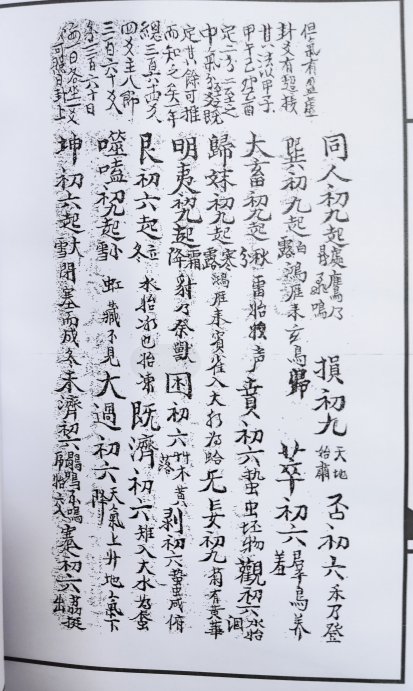 但氣有盈虛
卦爻有超接
其法以甲子
甲午己卯己酉
定二分二至之
中氣分爻既
定其餘可推
而知之矣一年
總三百八十四爻
四爻主八節
三百六十爻
主三百六十日
每一日各坐一爻
又可照日卦上
同人初九起處暑鷹乃祭鳥 損初九天地始肅 否初六禾乃登
巽初九起白露鴻雁來玄鳥歸 萃初六羣鳥養羞
大畜初九起秋分雷始收声 賁初六蟄虫坯物 觀初六水始涸
歸妹初九起寒露鴻雁來賓雀入大水為蛤 无妄初九菊有黃華
明夷初九起霜降豺乃祭獸 困初六艸木黃落 剝初六蟄虫咸俯
艮初六起立冬水始冰地始凍 既濟初六雉入大水為蜃
噬嗑初九起小雪虹藏不見 大過初六天氣上升地氣下降
坤初六起大雪閉塞而成冬 未濟初六鶡鴠不鳴 蹇初六荔挺出